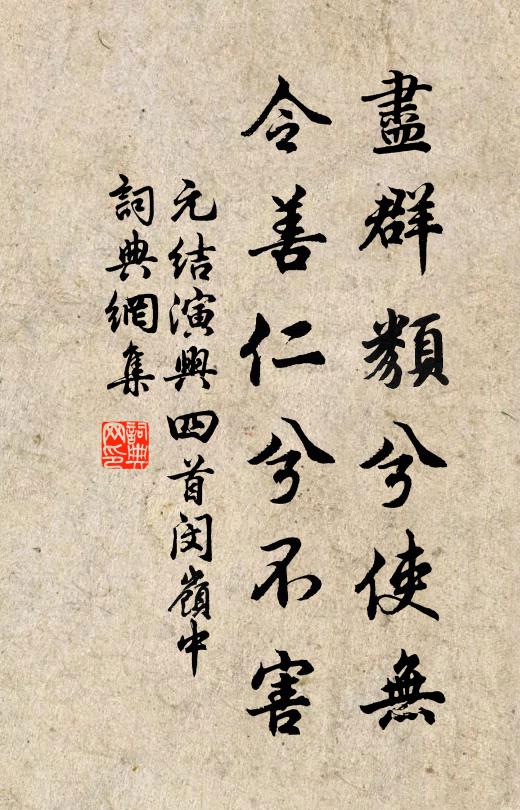 盡群類兮使無
令善仁兮不害
元结演興四首闵嶺中
詞典網集
詞典
网印